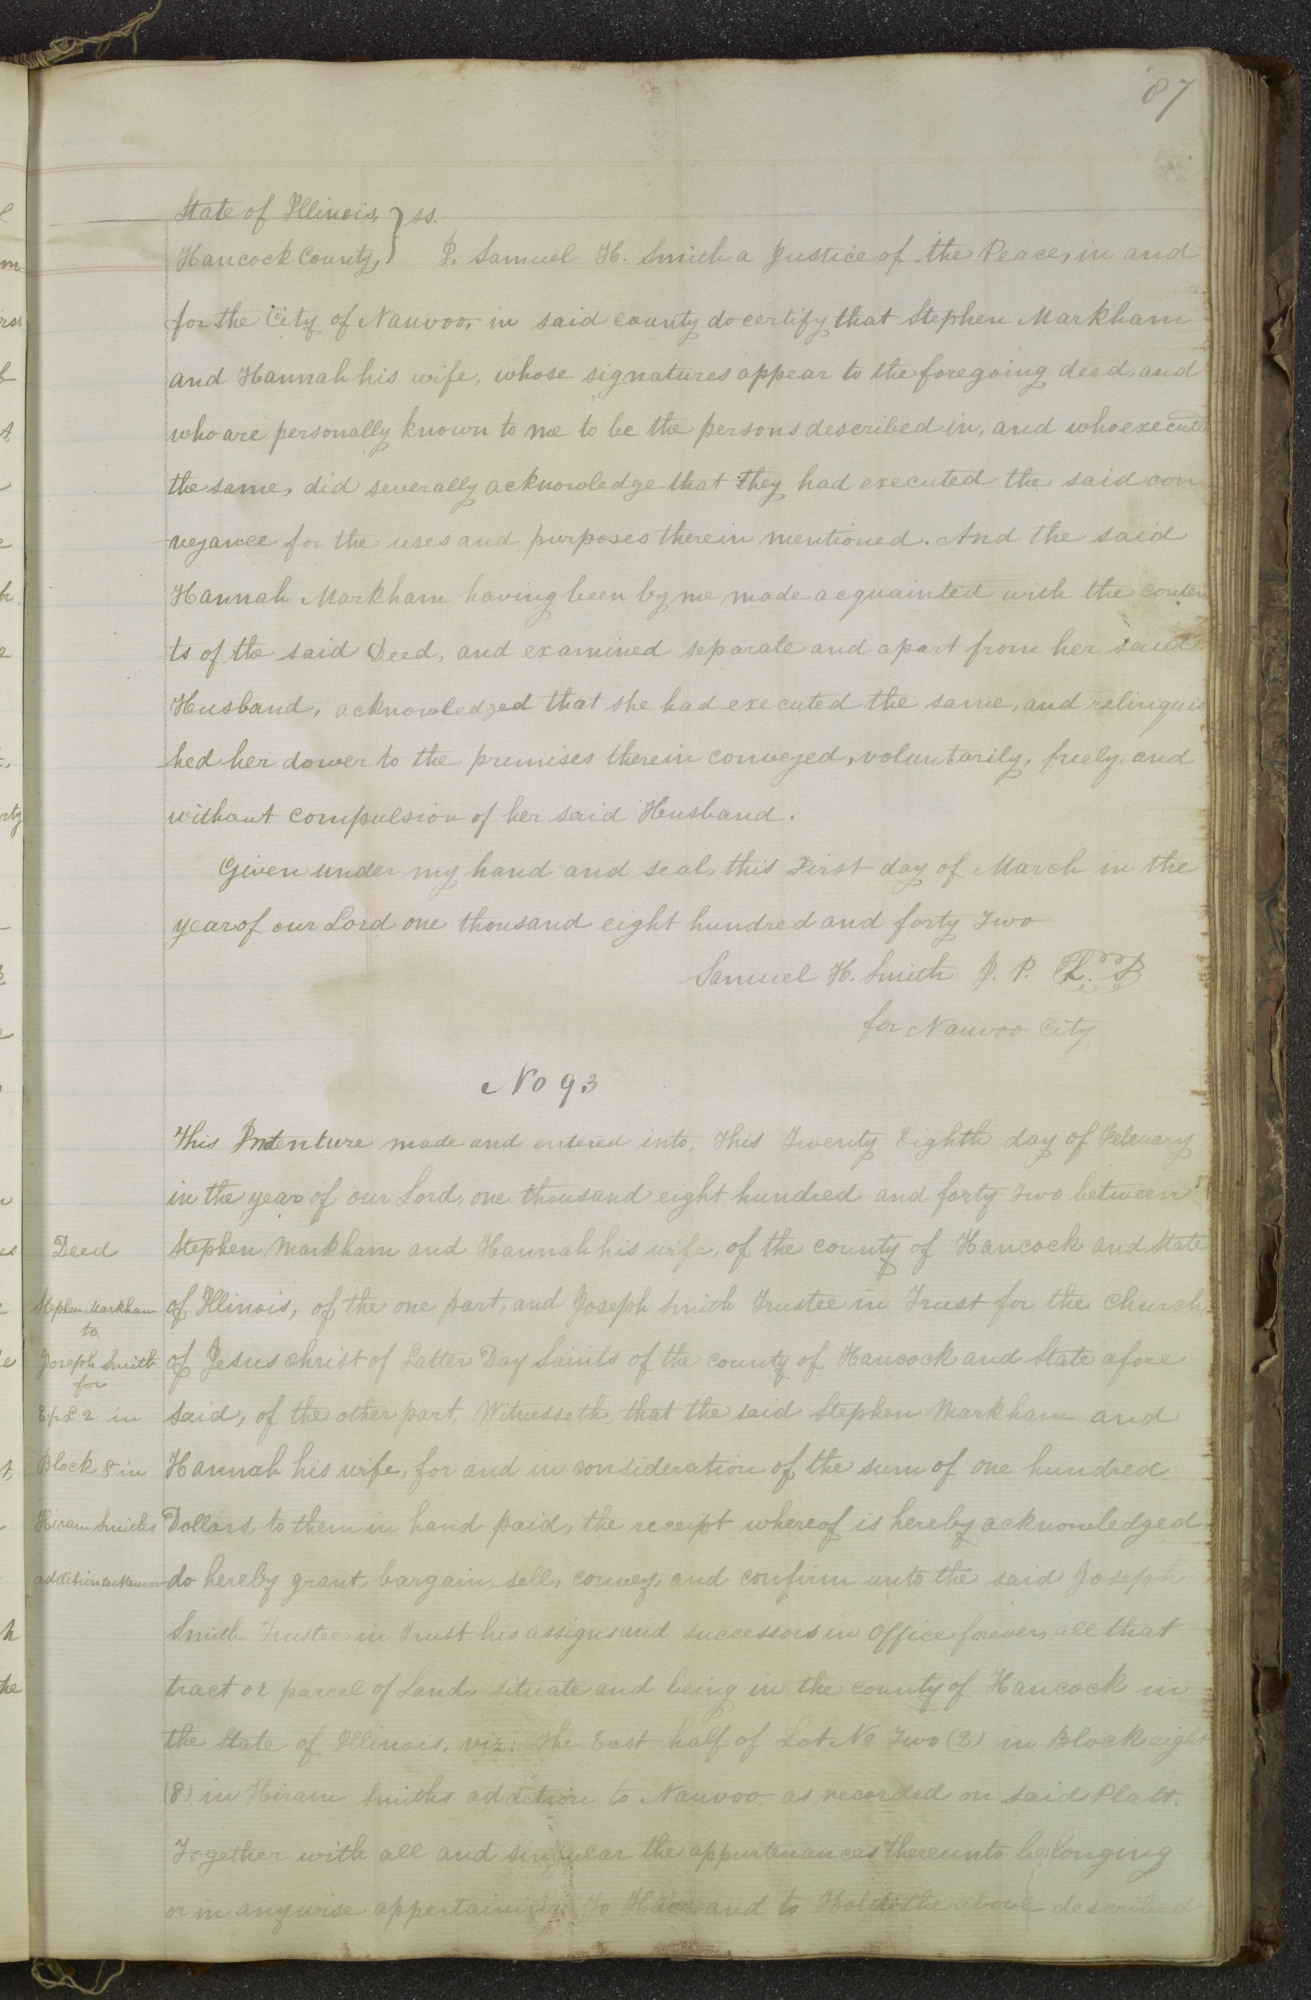 87
State of Illinois, } ss.
Hancock County, } I, Samuel H. Smith a Justice of the Peace, in and
for the City of Nauvoo, in said county do certify that Stephen Markham
and Hannah his wife, whose signatures appear to the foregoing deed, and
who are personally known to me to be the persons described in, and who executed
the same, did severally acknowledge that they had executed the said con
veyance for the uses and purposes therein mentioned. And the said
Hannah Markham having been by me made acquainted with the conten
ts of the said Deed, and examined separate and apart from her said
Husband, acknowledged that she had executed the same, and relinquis
hed her dower to the premises therein conveyed, voluntarily, freely, and
without compulsion of her said Husband.
Given under my hand and seal, this First day of March in the
year of our Lord one thousand eight hundred and forty Two
Samuel H. Smith J. P. L. S
for Nauvoo City
No 93
This Indenture made and entered into, This Twenty Eighth day of February
in the year of our Lord, one thousand eight hundred and forty Two between
Stephen Markham and Hannah his wife, of the county of Hancock and State
of Illinois, of the one part, and Joseph Smith Trustee in Trust for the Church
of Jesus Christ of Latter Day Saints of the county of Hancock and State afore
said, of the other part, Witnesseth, that the said Stephen Markham and
Hannah his wife, for and in consideration of the sum of one hundred
Dollars, to them in hand paid, the receipt whereof is hereby acknowledged
do hereby grant, bargain, sell, convey, and confirm unto the said Joseph
Smith, Trustee in Trust his assigns and successors in Office forever, all that
tract or parcel of Land, situate and being in the county of Hancock in
the State of Illinois, viz: The East half of Lot No Two (2) in Block eight
(8) in Hiram Smiths addition to Nauvoo as recorded on said Platt.
Together with all and singular the appurtenances thereunto belonging
or in anywise appertaining. To Have and to Hold the above described
Deed
Stephen Markham
to
Joseph Smith
for
E ½ L 2 in
Block 8 in
Hiram Smiths
addition to Nauvoo